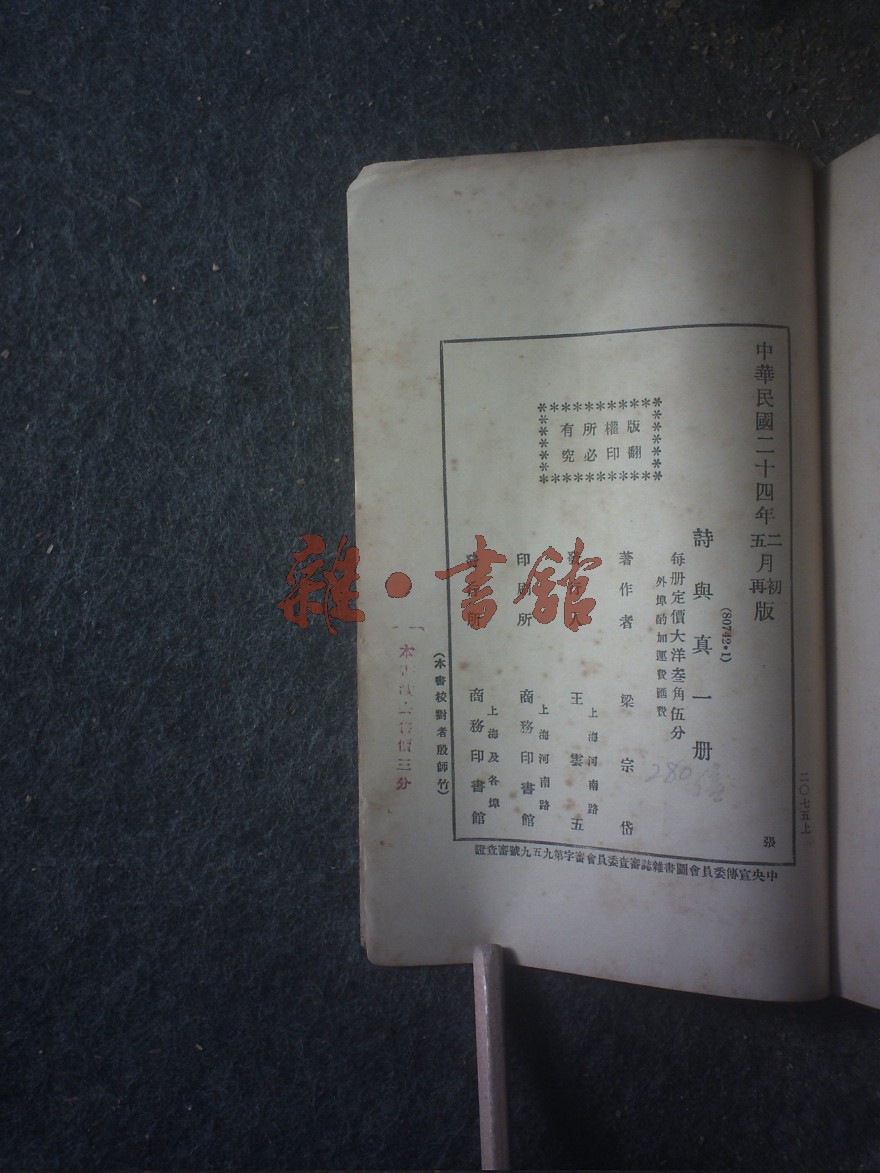 二〇七五上
張
中華民國二十四年二月初版
五再
詩與真一册
(80742•1)
每册定價大洋叁角伍分
外埠酌加運費匯費
280
版權所有
翻印必究
著作者 梁宗岱
發行人 王雲五
上海河南路
印刷所 商務印書館
上海河南路
發行所 商務印書館
上海及各埠
(本書校對者殷師竹)
價三分
中央宣傳委員會圖書雜誌審查委員會審字第九五九號審查證
雜•書館